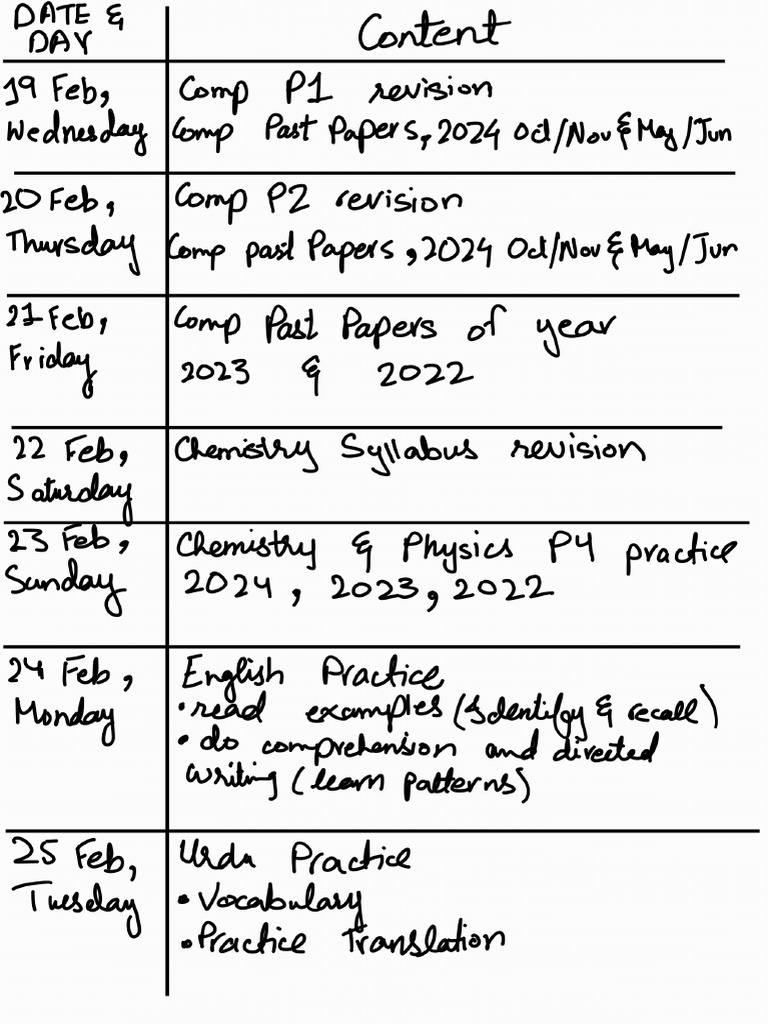 DATE & DAY
Content
19 Feb,
Wednesday
Comp P1 revision
Comp Past Papers, 2024 Oct/Nov & May/Jun
20 Feb,
Thursday
Comp P2 revision
Comp past Papers, 2024 Oct/Nov & May/Jun
21 Feb,
Friday
Comp Past Papers of year
2023 & 2022
22 Feb,
Saturday
Chemistry Syllabus revision
23 Feb,
Sunday
Chemistry & Physics P4 practice
2024, 2023, 2022
24 Feb,
Monday
English Practice
• read examples (Identify & recall)
• do comprehension and directed
writing (learn patterns)
25 Feb,
Tuesday
Urdu Practice
• Vocabulary
• Practice Translation